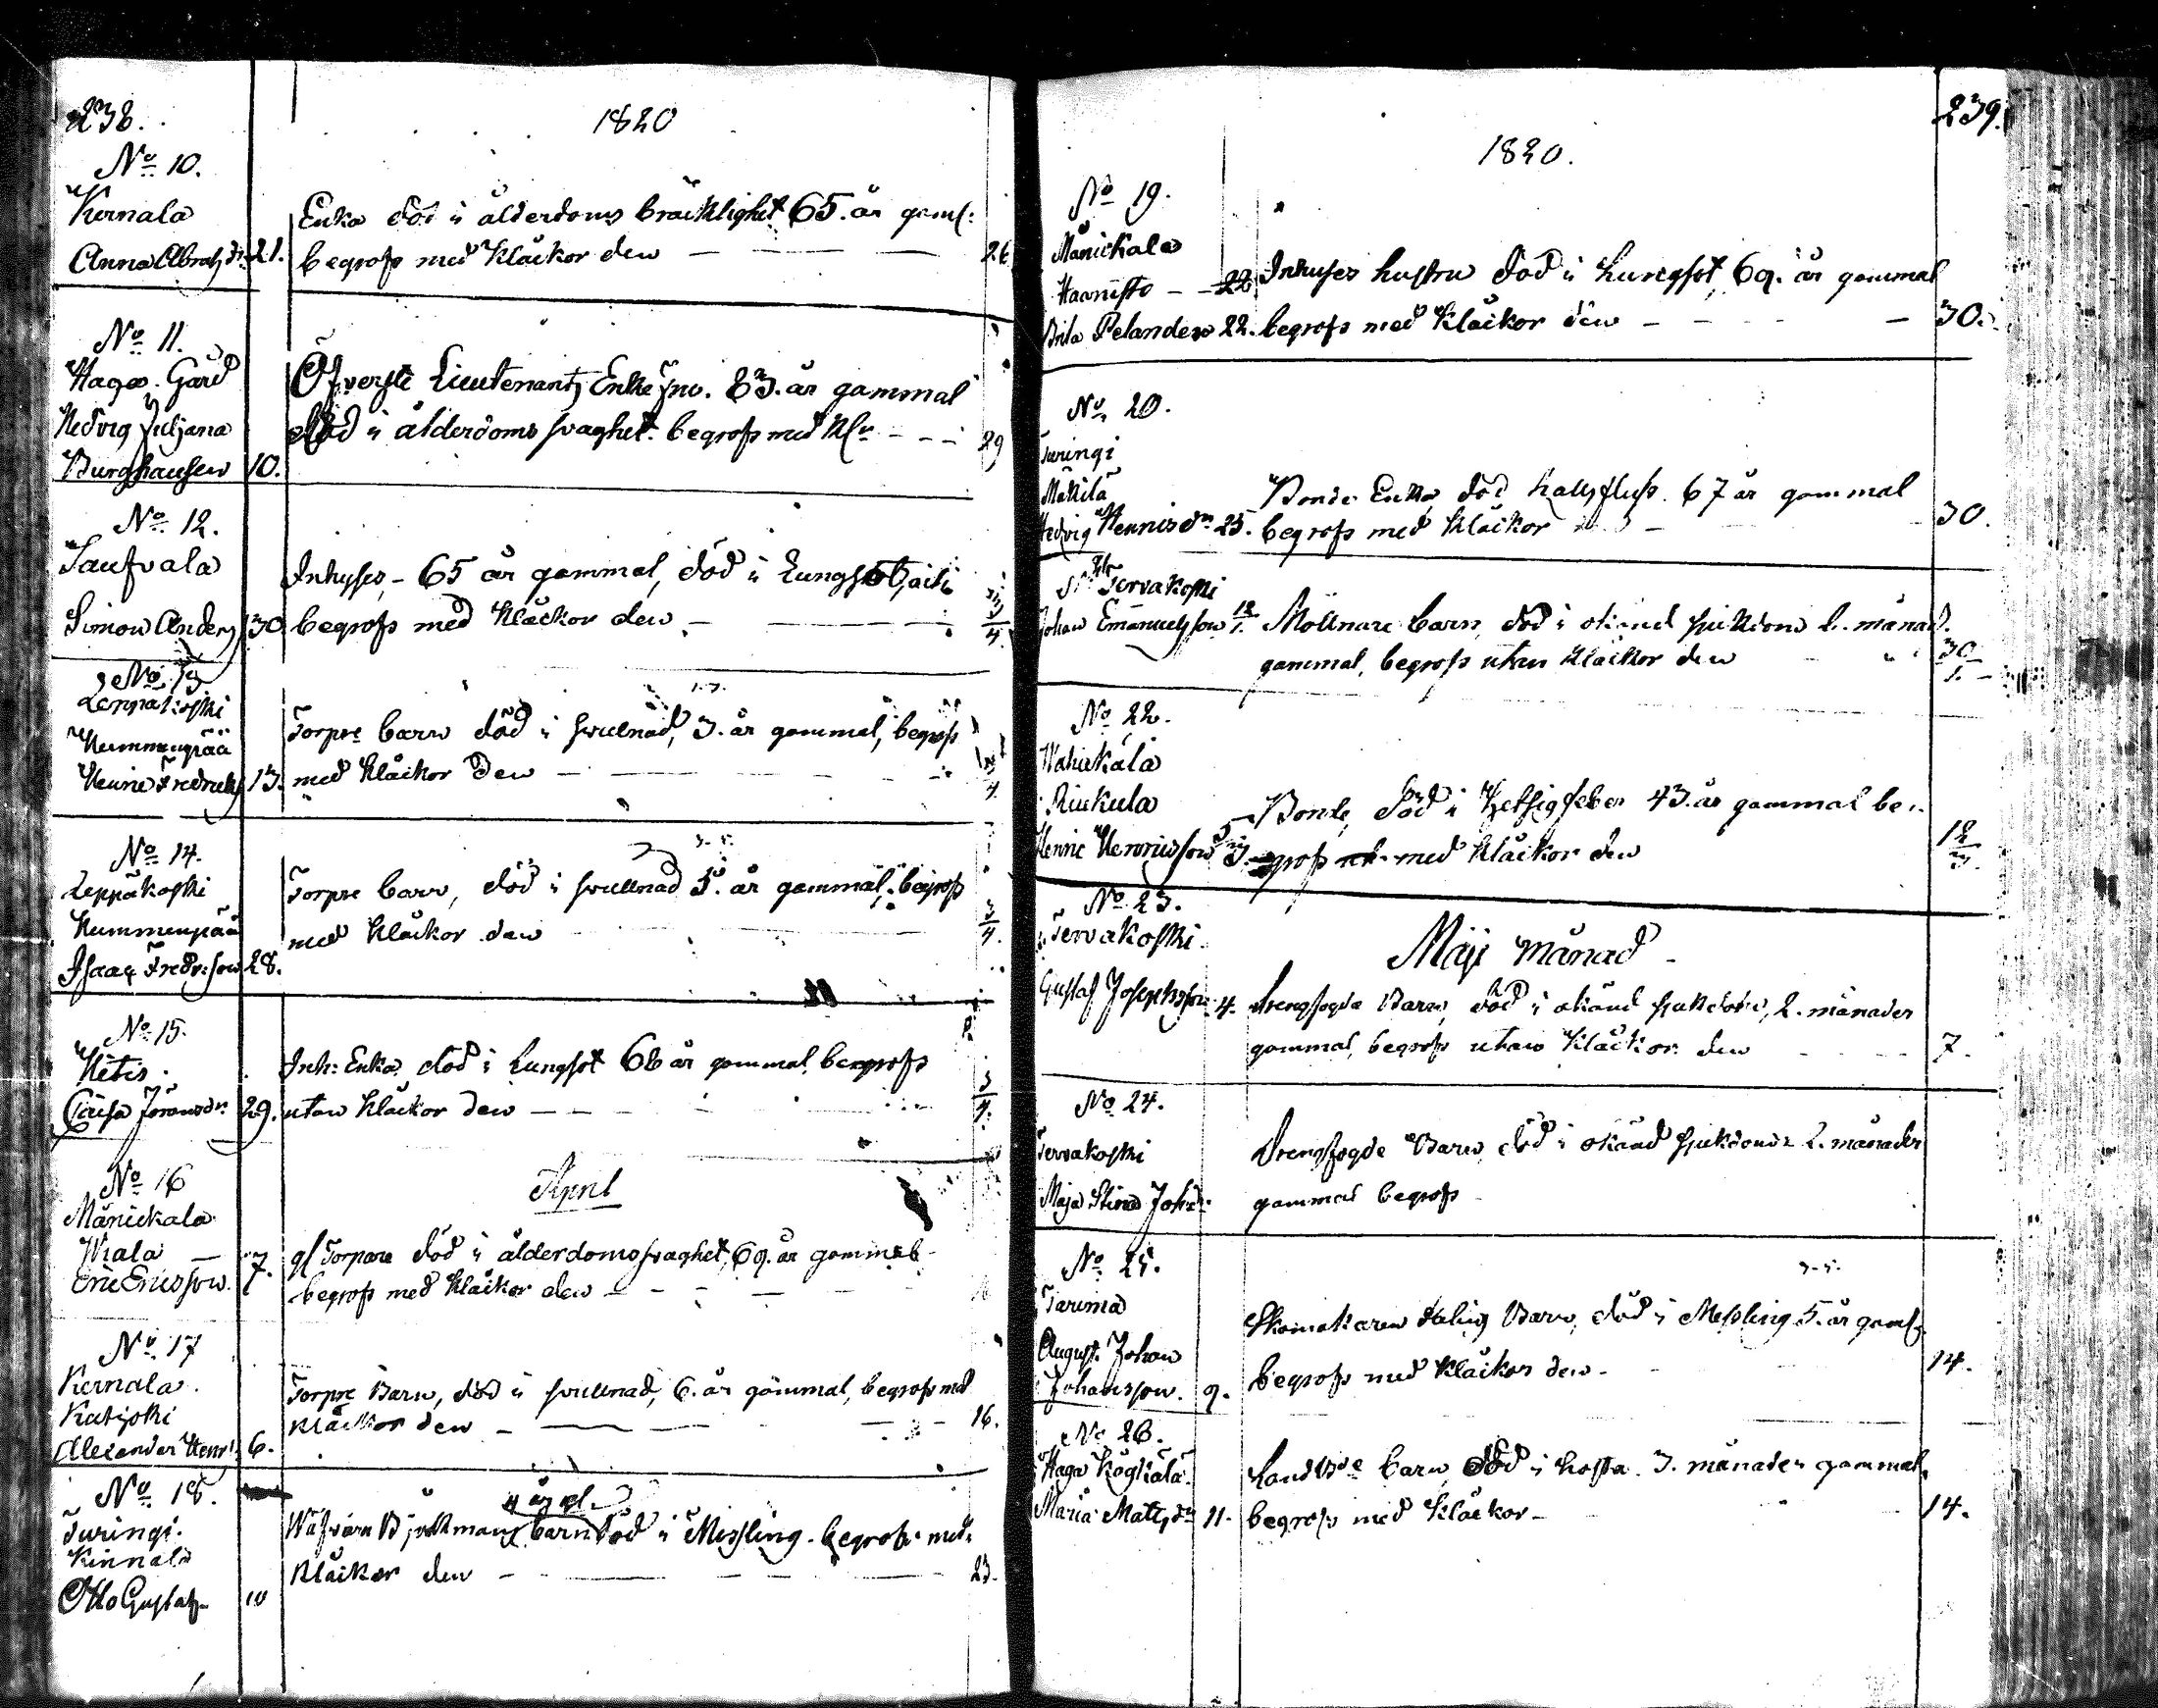 238.
1820
No 10.
Kernala
Enka död i ålderdoms bräcklighet 65. år gaml:
Anna Abrahdr. 21. begrofs med Klåckor den — 26
No 11.
Haga Gård
Öfverste Lieutenants Enke fru. 83. år gammal
Hedvig Juljana
död i ålderdoms svaghet. begrofs med Klr - - - 29
Burghausen 10.
No 12.
Saufvala
Inhyses - 65 år gammal, död i Lungsot,
Simon Anders 30 begrofs med Klåckor den — 3/4.
No 13
Leppäkoski
Hummenpää
Torpre barn död i svullnad, 3. år gammal, begrofs
Henric Fredricks 13. med Klåckor den — 3/4
No 14.
Leppäkoski
Torpre barn, död i svullnad 5. år gammal, begrofs
Hummenpää
med Klåckor den 3/4.
Isaac Fredr:son 28.
No 15.
Hetis.
Inh: Enka död i Lungsot 68 år gammal, begrofs
Caisa Jöransdr. 29. utan Klåckor den — 3/4.
No 16
April
Mänickala
Wiala — 7. gl Torpare död i ålderdomssvaghet, 69. år gammal
Eric Ericsson. begrofs med Klåckor den —
No 17
Kernala.
Torpre Barn, död i svullnad, 6. år gammal, begrofs med
Katisko
Klåckor den — 16.
Alexander Henr: 6.
No 18.
4 år gl.
Turingi.
Wäfvarn Björkmans barn död i Missling. begrofs med
Kinnala
Klåckor den — 23.
Otto Gustaf 10
239.
1820.
No 19.
Mänickala
Haanisto - - 22 Inhyses hustru död i Lungsot, 69. år gammal
Brita Pelander 22. begrofs med Klåckor den — 30.
No 20.
Turingi
Mäkilä
Bonde Enka, död halsfluss. 67 år gammal
Hedvig Hennicsdr 25. begrofs med Klåckor 30.
No 21. Tervakoski
Johan Emanuelsson 18/1. Möllnare barn, död i okänd sjukdom 2. månad.
gammal, begrofs utan Klåckor den 30/1.
No 22.
Wahikala
Riukula
Bonde, död i Hetsig feber 43. år gammal be-
Henric Henricsson 3. grofs med Klåckor den 12/3.
No 23.
Tervakoski.
Maji månad
Gustaf Josephsson 4. Drengfogde Barn, död i okänd sjukdom, 2. månader
gammal, begrofs utan Klåckor den 7.
No 24.
Tervakoski
Drengfogde Barn, död i okänd sjukdom 2. månader
Maja Stina Joh:
gammal begrofs
No 25.
Tarima
Skomakaren Barn, död i Messling 5. år gaml
August Johan
begrofs med Klåckor den - 14.
Johansson. 9.
No 26.
Haga Kögkälä.
Landbde barn död i hosta. 3. månader gammal,
Maria Mattsdr 11. begrofs med Klåckor - 14.